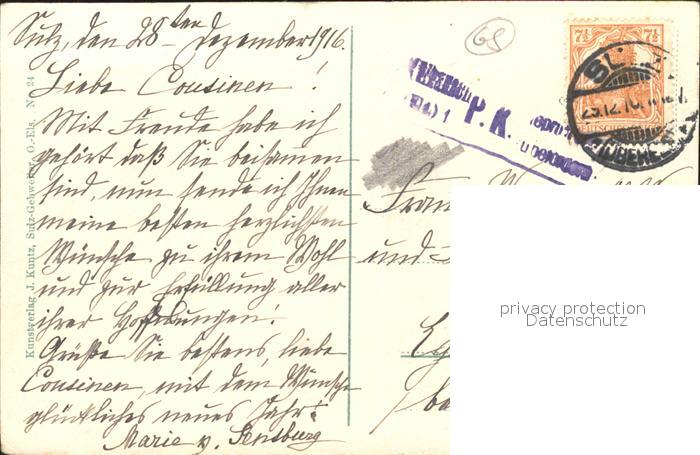 Sulz, den 28ten Dezember 1916.
Liebe Cousinen!
Mit Freude habe ich
gehört daß Sie beisamen
sind, nun sende ich Ihnen
meine besten herzlichsten
Wünsche zu ihrem Wohl
und zur Erfüllung aller
ihrer Hoffnungen!
Grüße Sie bestens, liebe
Cousinen, mit dem Wunsche
glückliches neues Jahr!
Marie v.
Kunstverlag J. Kuntz, Sulz-Gebweiler, O.-Els. No 24
68
P. K.
7½ 7½
und
privacy protection
Datenschutz